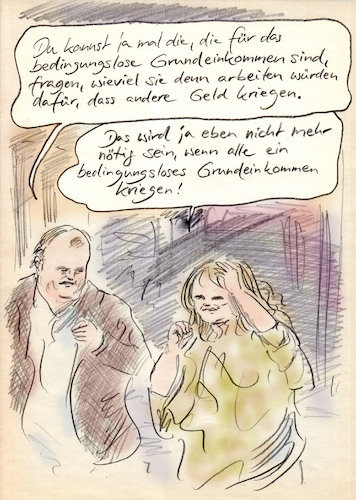 Du kannst ja mal die, die für das
bedingungslose Grundeinkommen sind,
fragen, wieviel sie denn arbeiten würden
dafür, dass andere Geld kriegen.
Das wird ja eben nicht mehr
nötig sein, wenn alle ein
bedingungsloses Grundeinkommen
kriegen!